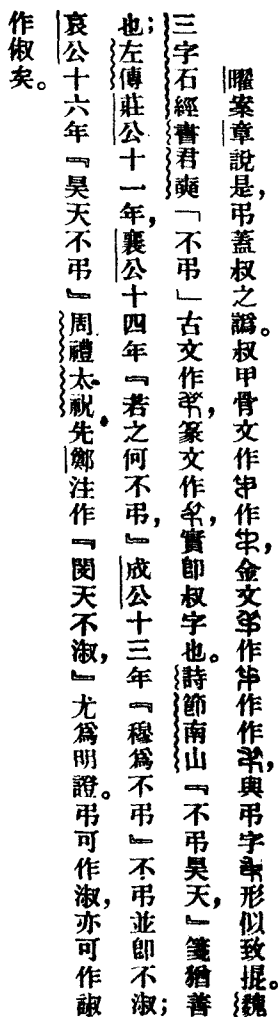 曜案章說是，弔蓋叔之譌。叔甲骨文作作，金文作作作，與弔字形似致掍。魏
三字石經書君奭「不弔」古文作，篆文作，實卽叔字也。詩節南山『不弔昊天，』箋猶善
也；左傳莊公十一年，襄公十四年『若之何不弔，』成公十三年『穆爲不弔』不弔並卽不淑；
哀公十六年『昊天不弔』周禮太祝先鄭注作『閔天不淑，』尤爲明證。弔可作淑，亦可作諔
作俶矣。